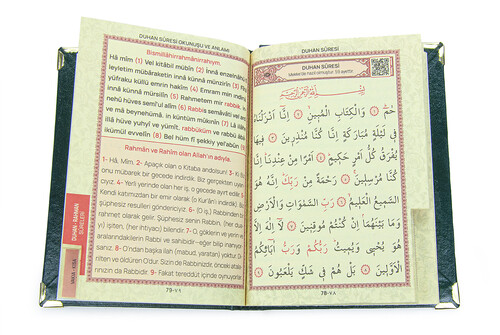 DUHAN SÛRESİ OKUNUŞU VE ANLAMI
Bismillâhirrahmânirrahîym.
Hâ mîm (1) Vel kitâbil mübîn (2) İnnâ enzelnâhü
leyletim mübâraketin innâ künnâ münzirîn (3)
yüfraku küllü emrin hakîm (4) Emram min indinâ
innâ künnâ mürsilîn (5) Rahmetem mir rabbik,
nehû hüves semî'ul alîm (6) Rabbis semâvâti vel
ve mâ beynehümâ. in küntüm mûkınîn (7) Lâ
illâ hüve yuhyî ve yümît. rabbüküm ve rabbü âbâ
ikümül evvelîn (8) Bel hüm fî şekkiy yel'abûn
Rahmân ve Rahîm olan Allah'ın adıyla.
1- Hâ, Mîm. 2- Apaçık olan o Kitaba andolsun! 3- Ki
onu mübarek bir gecede indirdik. Biz gerçekten uyarı
cıyız. 4- Yani yerinde olan her iş, o gecede ayırt edilir.
Kendi katımızdan bir emir olarak (o Kur'ânı indirdik)
şüphesiz resulleri göndericiyiz. 6- (O iş,) Rabbinden
rahmet olarak gelir. Şüphesiz senin Rabbin, (her du
yı) işiten, (her ihtiyacı) bilendir. 7- O, göklerin ve yerin
aralarındakilerin Rabbi ve sahibidir-eğer bilip inanıyor
sanız. 8- O'ndan başka ilah (mabud, yaratan) yoktur.
rilten ve öldüren O'dur. Sizin de Rabbinizdir, önceki atala
rınızın da Rabbidir. 9- Fakat tereddüt içinde oynuyorlar
DUHAN - RAHMAN
SÛRELERİ
79-٧٩
DUHAN SÛRESİ
DUHAN SÛRESİ
Mekke'de nazil olmuştur. 59 ayettir.
بِسْمِ اللّٰهِ الرَّحْمٰنِ الرَّحِيمِ
حٰمٓ ﴿١﴾ وَالْكِتَابِ الْمُبِينِ ﴿٢﴾ اِنَّٓا اَنْزَلْنَاهُ
فِي لَيْلَةٍ مُبَارَكَةٍ اِنَّا كُنَّا مُنْذِرِينَ ﴿٣﴾ فِيهَا
يُفْرَقُ كُلُّ اَمْرٍ حَكِيمٍ ﴿٤﴾ اَمْرًا مِنْ عِنْدِنَا اِنَّا
كُنَّا مُرْسِلِينَ ﴿٥﴾ رَحْمَةً مِنْ رَبِّكَ اِنَّهُ هُوَ
السَّمِيعُ الْعَلِيمُ ﴿٦﴾ رَبِّ السَّمٰوَاتِ وَالْاَرْضِ
وَمَا بَيْنَهُمَا اِنْ كُنْتُمْ مُوقِنِينَ ﴿٧﴾ لَٓا اِلٰهَ اِلَّا
هُوَ يُحْيِي وَيُمِيتُ رَبُّكُمْ وَرَبُّ اٰبَٓائِكُمُ
الْاَوَّلِينَ ﴿٨﴾ بَلْ هُمْ فِي شَكٍّ يَلْعَبُونَ ﴿٩﴾
78-٧٨